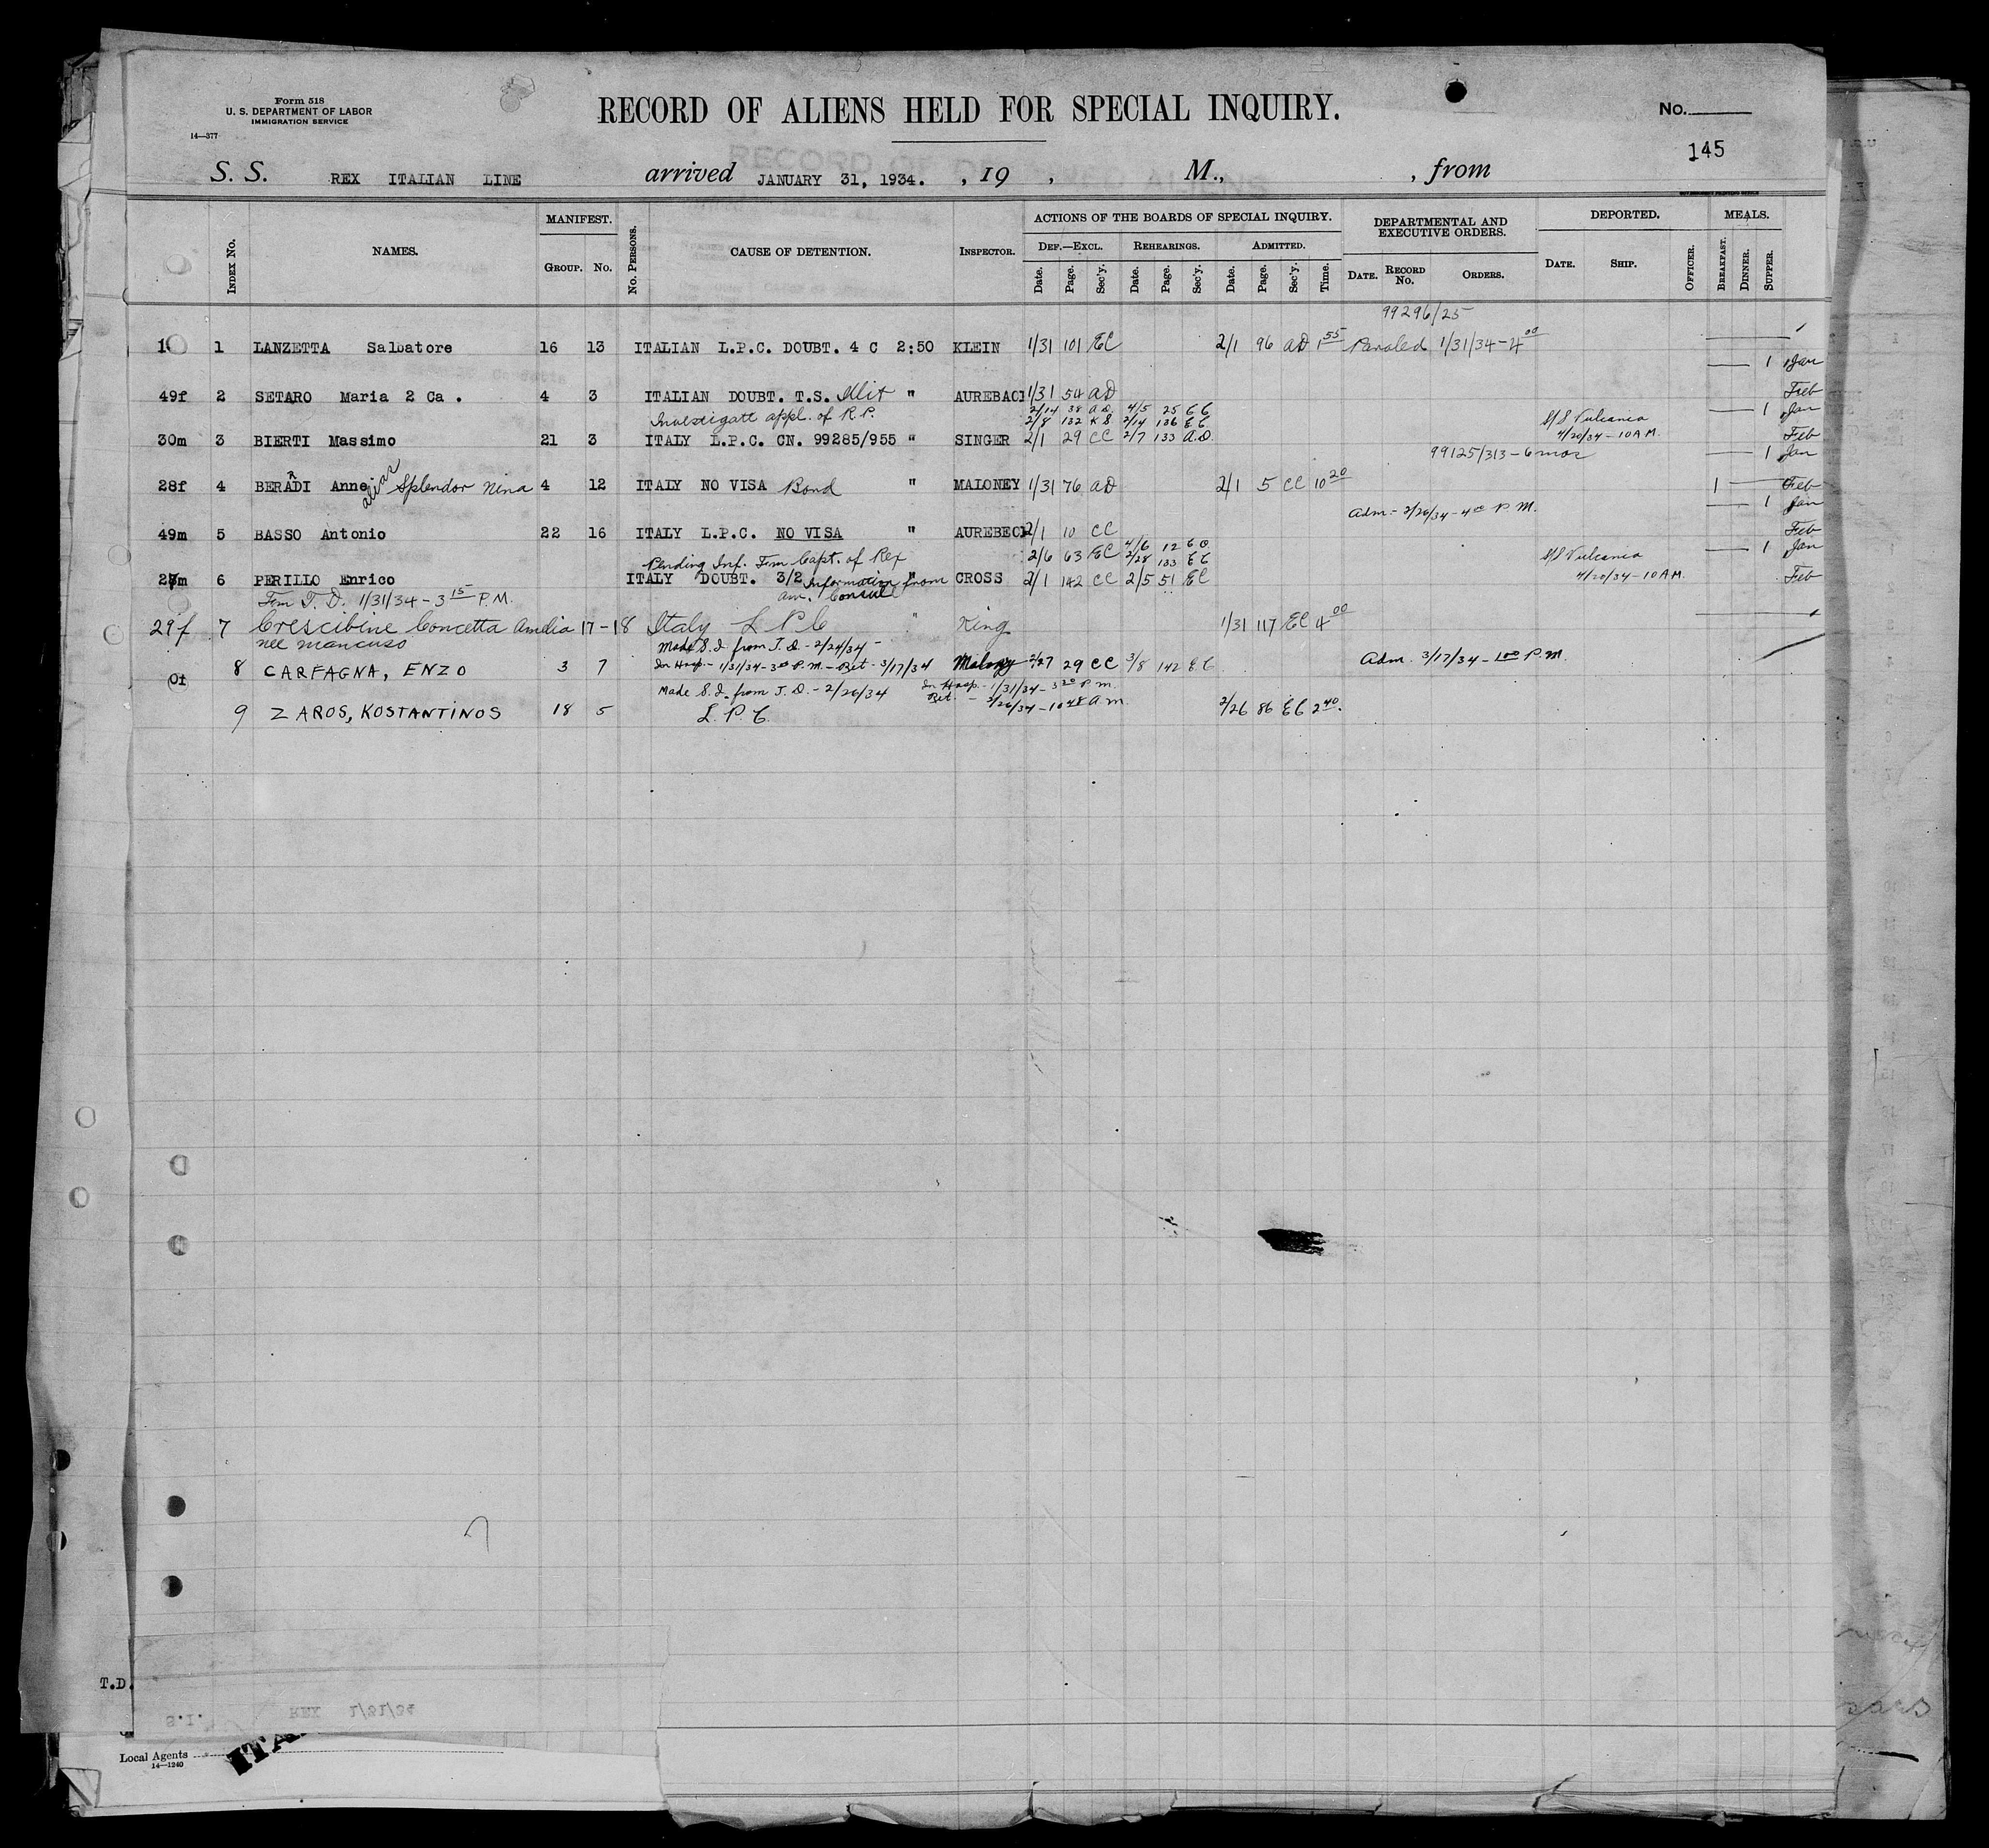 Form 518
U. S. DEPARTMENT OF LABOR
IMMIGRATION SERVICE
14—377
RECORD OF ALIENS HELD FOR SPECIAL INQUIRY.
No.
145
S. S. REX ITALIAN LINE arrived JANUARY 31, 1934. , 19 , M., , from
Index No. NAMES. MANIFEST. Group. No. No. Persons. CAUSE OF DETENTION. Inspector. ACTIONS OF THE BOARDS OF SPECIAL INQUIRY. Def.—Excl. Date. Page. Sec'y. Rehearings. Date. Page. Sec'y. Admitted. Date. Page. Sec'y. Time. DEPARTMENTAL AND EXECUTIVE ORDERS. Date. Record No. Orders. DEPORTED. Date. Ship. Officer. MEALS. Breakfast. Dinner. Supper.
99296/25
1 LANZETTA Salbatore 16 13 ITALIAN L.P.C. DOUBT. 4 C 2:50 KLEIN 1/31 101 EC 2/1 96 AD 1 55 Paroled 1/31/34 - 4 00
1 Jan
49f 2 SETARO Maria 2 Ca . 4 3 ITALIAN DOUBT. T.S. " AUREBACH 1/31 54 AD Feb
Investigate appl. of R.P. 2/14 38 A.D. 4/5 25 EC S/S Vulcania 1 Jan
2/8 132 KS 2/14 136 EC 4/20/34 - 10 A.M.
30m 3 BIERTI Massimo 21 3 ITALY L.P.C. CN. 99285/955 " SINGER 2/1 29 CC 2/7 133 A.D. Feb
99125/313 - 6 mos 1 Jan
28f 4 BERADI Anne alias Splendor Nina 4 12 ITALY NO VISA Bond " MALONEY 1/31 76 AD 2/1 5 CC 10 20 1 Feb
Adm - 2/20/34 - 4 P.M. 1 Jan
49m 5 BASSO Antonio 22 16 ITALY L.P.C. NO VISA " AUREBECH 2/1 10 CC Feb
Pending Inf. Frm Capt. of Rex 2/6 63 EC 4/6 12 2/28 133 EC S/S Vulcania 1 Jan
6 PERILLO Enrico ITALY DOUBT. 3/2 Information from CROSS 2/1 142 CC 2/5 51 EC 4/20/34 - 10 A.M. Feb
Frm T. D. 1/31/34 - 3 15 P.M. Am. Consul
29f 7 Crescibine Concetta Amelia 17 - 18 Italy L P C " King 1/31 117 EC 4 00
nee Mancuso Made S.I. from T.D. - 2/24/34 -
8 CARFAGNA, ENZO 3 7 In Hosp - 1/31/34 - 3 00 P.M. - Ret - 3/17/34 2/27 29 CC 3/8 142 EC Adm. 3/17/34 - 1 00 P.M.
Made S.I. from T.D. - 2/26/34 In Hosp - 1/31/34 - 3 20 P.M.
Ret. - 2/26/34 - 10 48 A.M.
9 ZAROS, KOSTANTINOS 18 5 L.P.C. 2/26 86 EC 2 40.
T.D.
S.I. REX 1/31/34
Local Agents
14—1240
ITA